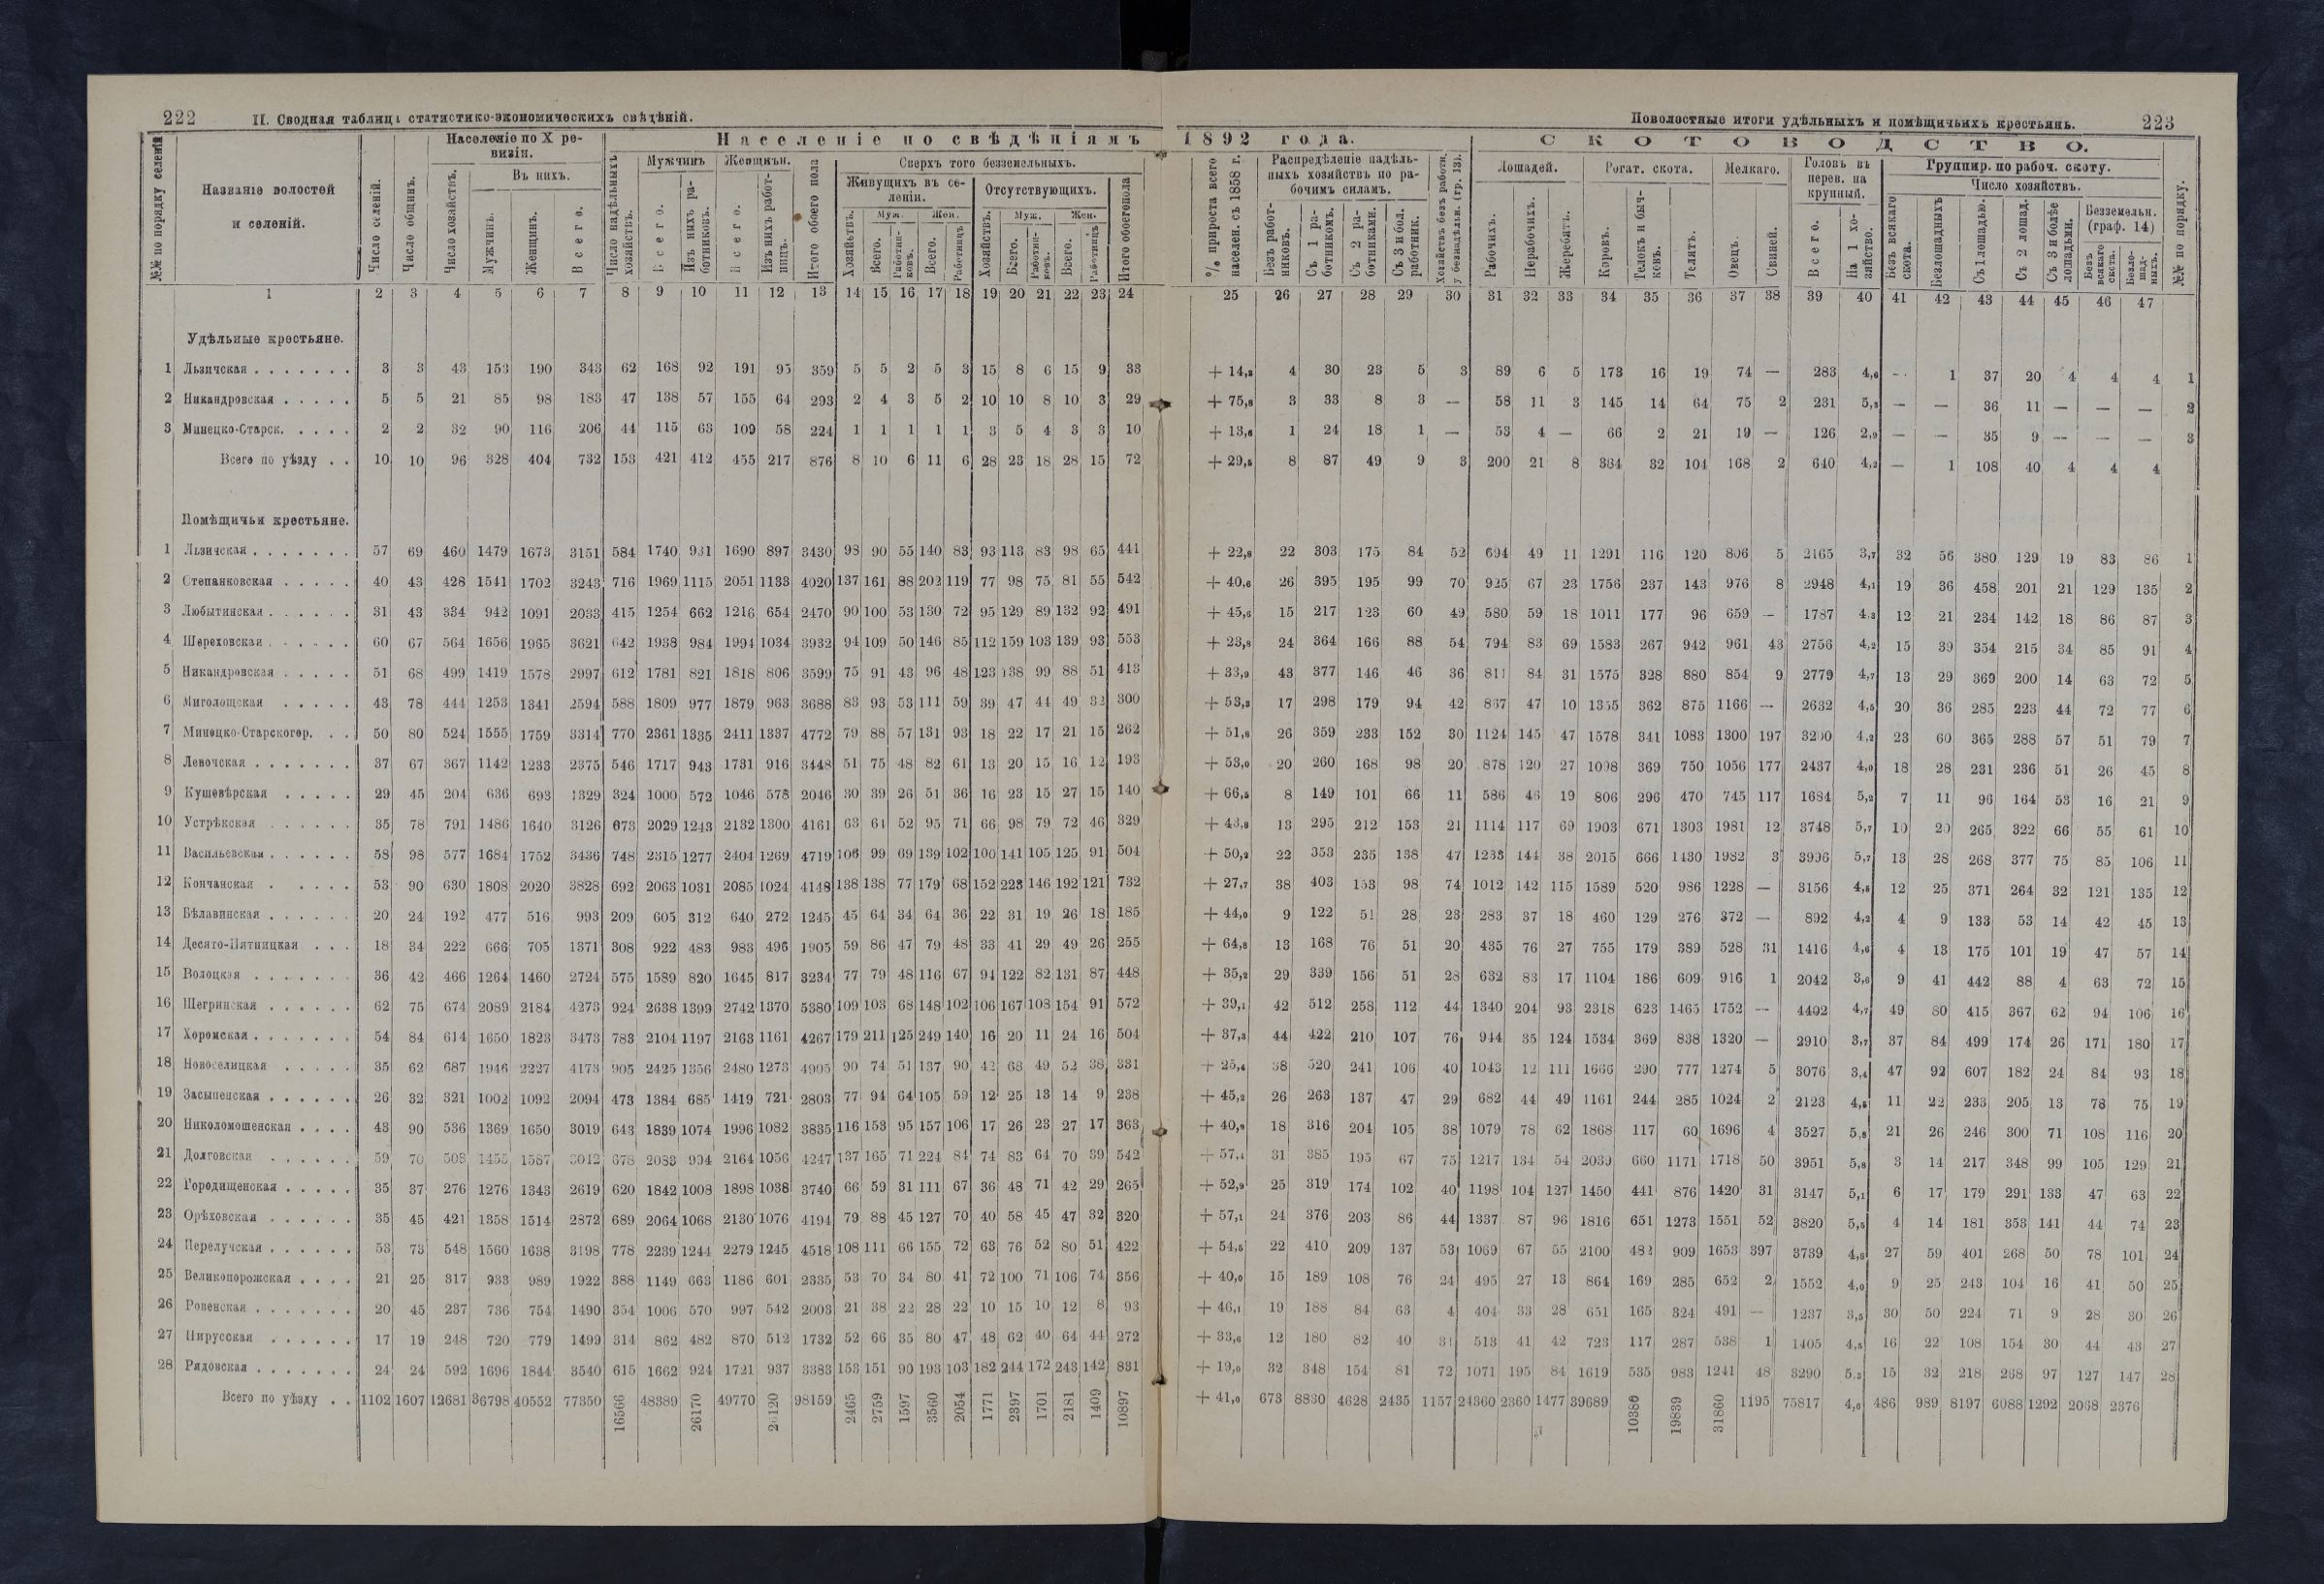 222
II. Сводная таблица статистико-экономическихъ свѣдѣній.
Поволостные итоги удѣльныхъ и помѣщичьихъ крестьянъ.
223
№№ по порядку селеній
Названіе волостей и селеній.
Число селеній.
Число общинъ.
Населеніе по X ревизіи.
Число хозяйствъ.
Въ нихъ.
Мужчинъ.
Женщинъ.
Всего.
Населеніе по свѣдѣніямъ 1892 года.
Число надѣльныхъ хозяйствъ.
Мужчинъ
Всего.
Изъ нихъ работниковъ.
Женщинъ.
Всего.
Изъ нихъ работницъ.
Итого обоего пола
Сверхъ того безземельныхъ.
Живущихъ въ селеніи.
Отсутствующихъ.
Хозяйствъ.
Муж.
Жен.
Всего.
Работниковъ.
Всего.
Работницъ
Хозяйствъ.
Муж.
Жен.
Всего.
Работниковъ.
Всего.
Работницъ
Итого обоего пола
% прироста всего населен. съ 1858 г.
Распредѣленіе надѣльныхъ хозяйствъ по рабочимъ силамъ.
Безъ работниковъ.
Съ 1 работникомъ.
Съ 2 работниками.
Съ 3 и бол. работник.
Хозяйствъ безъ работн. у безнадѣльн. (гр. 13).
СКОТОВОДСТВО.
Лошадей.
Рабочихъ.
Нерабочихъ.
Жеребятъ.
Рогат. скота.
Коровъ.
Телокъ и бычковъ.
Телятъ.
Мелкаго.
Овецъ.
Свиней.
Головъ въ перев. на крупный.
Всего.
На 1 хозяйство.
Группир. по рабоч. скоту.
Число хозяйствъ.
Безъ всякаго скота.
Безлошадныхъ
Съ 1 лошадью.
Съ 2 лошад.
Съ 3 и болѣе лошадьми.
Безземельн. (граф. 14)
Безъ всякаго скота.
Безлошадныхъ.
№№ по порядку.
1 2 3 4 5 6 7 8 9 10 11 12 13 14 15 16 17 18 19 20 21 22 23 24 25 26 27 28 29 30 31 32 33 34 35 36 37 38 39 40 41 42 43 44 45 46 47
Удѣльные крестьяне.
1 Льзичская 3 3 43 153 190 343 62 168 92 191 95 359 5 5 2 5 3 15 8 6 15 9 33 + 4 30 23 5 3 89 6 5 173 16 19 74 — 283 — 1 37 20 4 4 4 1
2 Никандровская 5 5 21 85 98 183 47 138 57 155 64 293 2 4 3 5 2 10 10 8 10 3 29 + 75,8 3 33 8 3 — 58 11 3 145 14 64 75 2 231 — — 36 11 — — — 2
3 Минецко-Старск. 2 2 32 90 116 206 44 115 63 109 58 224 1 1 1 1 1 3 5 4 3 3 10 + 1 24 18 1 — 53 4 — 66 2 21 19 — 126 2,9 — — 35 9 — — — 3
Всего по уѣзду 10 10 96 328 404 732 153 421 412 455 217 876 8 10 6 11 6 28 23 18 28 15 72 + 29,5 8 87 49 9 3 200 21 8 384 32 104 168 2 640 4,2 — 1 108 40 4 4 4
Помѣщичьи крестьяне.
1 Льзичская 57 69 460 1479 1673 3151 584 1740 931 1690 897 3430 98 90 55 140 83 93 113 83 98 65 441 + 22,8 22 303 175 84 52 694 49 11 1291 116 120 806 5 2165 3,7 32 56 380 129 19 83 86 1
2 Степанковская 40 43 428 1541 1702 3243 716 1969 1115 2051 1133 4020 137 161 88 202 119 77 98 75 81 55 542 + 40,6 26 395 195 99 70 925 67 23 1756 237 143 976 8 2948 4,1 19 36 458 201 21 129 135 2
3 Любытинская 31 43 334 942 1091 2033 415 1254 662 1216 654 2470 90 100 53 130 72 95 129 89 132 92 491 + 45,6 15 217 123 60 49 580 59 18 1011 177 96 659 — 1787 4,3 12 21 234 142 18 86 87 3
4 Шереховская 60 67 564 1656 1965 3621 642 1938 984 1994 1034 3932 94 109 50 146 85 112 159 103 139 93 553 + 23,8 24 364 166 88 54 794 83 69 1583 267 942 961 43 2756 4,2 15 39 354 215 34 85 91 4
5 Никандровская 51 68 499 1419 1578 2997 612 1781 821 1818 806 3599 75 91 43 96 48 123 138 99 88 51 413 + 33,9 43 377 146 46 36 811 84 31 1575 328 880 854 9 2779 4,7 13 29 369 200 14 63 72 5
6 Миголощская 43 78 444 1253 1341 2594 588 1809 977 1879 963 3688 83 93 53 111 59 39 47 44 49 32 300 + 53,3 17 298 179 94 42 867 47 10 1355 362 875 1166 — 2632 4,5 20 36 285 223 44 72 77 6
7 Минецко-Старскогор. 50 80 524 1555 1759 3314 770 2361 1335 2411 1337 4772 79 88 57 131 93 18 22 17 21 15 262 + 51,6 26 359 233 152 30 1124 145 47 1578 341 1083 1300 197 3200 4,2 23 60 365 288 57 51 79 7
8 Левочская 37 67 367 1142 1233 2375 546 1717 943 1731 916 3448 51 75 48 82 61 13 20 15 16 12 193 + 53,0 20 260 168 98 20 878 120 27 1098 369 750 1056 177 2437 4,0 18 28 231 236 51 26 45 8
9 Кушевѣрская 29 45 204 636 693 1329 324 1000 572 1046 578 2046 30 39 26 51 36 16 23 15 27 15 140 + 66,5 8 149 101 66 11 586 46 19 806 296 470 745 117 1684 5,2 7 11 96 164 53 16 21 9
10 Устрѣкская 35 78 791 1486 1640 3126 673 2029 1243 2132 1300 4161 63 61 52 95 71 66 98 79 72 46 329 + 43,8 13 295 212 153 21 1114 117 69 1903 671 1303 1981 12 3748 5,7 10 20 265 322 66 55 61 10
11 Васильевская 58 98 577 1684 1752 3436 748 2315 1277 2404 1269 4719 106 99 69 139 102 100 141 105 125 91 504 + 50,2 22 353 235 138 47 1233 144 38 2015 666 1430 1982 3 3996 5,7 13 28 268 377 75 85 106 11
12 Кончанская 53 90 630 1808 2020 3828 692 2063 1031 2085 1024 4148 138 138 77 179 68 152 223 146 192 121 732 + 27,7 38 403 153 98 74 1012 142 115 1589 520 986 1228 — 3156 4,6 12 25 371 264 32 121 135 12
13 Бѣлавинская 20 24 192 477 516 993 209 605 312 640 272 1245 45 64 34 64 36 22 31 19 26 18 185 + 44,0 9 122 51 28 23 283 37 18 460 129 276 372 — 892 4,2 4 9 133 53 14 42 45 13
14 Десято-Пятницкая 18 34 222 666 705 1371 308 922 483 983 496 1905 59 86 47 79 48 33 41 29 49 26 255 + 64,8 13 168 76 51 20 435 76 27 755 179 389 528 31 1416 4,6 4 13 175 101 19 47 57 14
15 Волоцкая 36 42 466 1264 1460 2724 575 1589 820 1645 817 3234 77 79 48 116 67 94 122 82 131 87 448 + 35,2 29 339 156 51 28 632 83 17 1104 186 609 916 1 2042 3,6 9 41 442 88 4 63 72 15
16 Шегринская 62 75 674 2089 2184 4273 924 2638 1399 2742 1370 5380 109 103 68 148 102 106 167 108 154 91 572 + 39,1 42 512 258 112 44 1340 204 93 2318 623 1465 1752 — 4402 4,7 49 80 415 367 62 94 106 16
17 Хоромская 54 84 614 1650 1823 3473 783 2104 1197 2163 1161 4267 179 211 125 249 140 16 20 11 24 16 504 + 37,3 44 422 210 107 76 944 35 124 1534 369 838 1320 — 2910 3,7 37 84 499 174 26 171 180 17
18 Новоселицкая 35 62 687 1946 2227 4173 905 2425 1356 2480 1273 4905 90 74 51 137 90 42 68 49 52 38 331 + 25,4 38 520 241 106 40 1043 12 111 1666 290 777 1274 5 3076 3,4 47 92 607 182 24 84 93 18
19 Засыпенская 26 32 321 1002 1092 2094 473 1384 685 1419 721 2803 77 94 64 105 59 12 25 13 14 9 238 + 45,2 26 263 137 47 29 682 44 49 1161 244 285 1024 2 2123 4,5 11 22 233 205 13 78 75 19
20 Николомошенская 43 90 536 1369 1650 3019 643 1839 1074 1996 1082 3835 116 153 95 157 106 17 26 23 27 17 363 + 40,9 18 316 204 105 38 1079 78 62 1868 117 60 1696 4 3527 5,8 21 26 246 300 71 108 116 20
21 Долговская 59 70 508 1455 1587 3012 678 2083 994 2164 1056 4247 137 165 71 224 84 74 83 64 70 39 542 + 57,4 31 385 195 67 75 1217 134 54 2039 660 1171 1718 50 3951 5,8 3 14 217 348 99 105 129 21
22 Городищенская 35 37 276 1276 1343 2619 620 1842 1008 1898 1038 3740 66 59 31 111 67 36 48 71 42 29 265 + 52,9 25 319 174 102 40 1198 104 127 1450 441 876 1420 31 3147 5,1 6 17 179 291 133 47 63 22
23 Орѣховская 35 45 421 1358 1514 2872 689 2064 1068 2130 1076 4194 79 88 45 127 70 40 58 45 47 32 320 + 57,1 24 376 203 86 44 1337 87 96 1816 651 1273 1551 52 3820 5,5 4 14 181 353 141 44 74 23
24 Перелучская 53 73 548 1560 1638 3198 778 2239 1244 2279 1245 4518 108 111 66 155 72 63 76 52 80 51 422 + 54,5 22 410 209 137 53 1069 67 55 2100 482 909 1653 397 3739 4,8 27 59 401 268 50 78 101 24
25 Великопорожская 21 25 317 933 989 1922 388 1149 663 1186 601 2335 53 70 34 80 41 72 100 71 106 74 356 + 40,0 15 189 108 76 24 495 27 13 864 169 285 652 2 1552 4,0 9 25 243 104 16 41 50 25
26 Ровенская 20 45 237 736 754 1490 354 1006 570 997 542 2003 21 38 22 28 22 10 15 10 12 8 93 + 46,1 19 188 84 63 4 404 33 28 651 165 324 491 — 1237 3,5 30 50 224 71 9 28 30 26
27 Пирусская 17 19 248 720 779 1499 314 862 482 870 512 1732 52 66 35 80 47 48 62 40 64 44 272 + 33,6 12 180 82 40 31 513 41 42 723 117 287 538 1 1405 4,5 16 22 108 154 30 44 43 27
28 Рядовская 24 24 592 1696 1844 3540 615 1662 924 1721 937 3383 153 151 90 193 103 182 244 172 243 142 831 + 19,0 32 348 154 81 72 1071 195 84 1619 535 983 1241 48 3290 15 32 218 268 97 127 147 28
Всего по уѣзду 1102 1607 12681 36798 40552 77350 16566 48389 26170 49770 26120 98159 2465 2759 1597 3560 2054 1771 2397 1701 2181 1409 10897 + 41,0 673 8830 4628 2435 1157 24360 2360 1477 39689 10386 19839 31860 1195 75817 4,6 486 989 8197 6088 1292 2068 2376